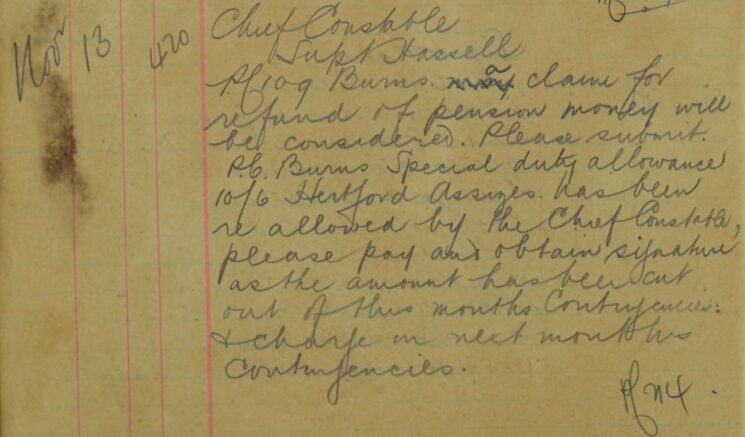 Nov 13 420 Chief Constable
Supt Hassell
P.C. 109 Burns a claim for
refund of pension money will
be considered. Please submit.
P.C. Burns Special duty allowance
10/6 Hertford Assizes has been
re allowed by the Chief Constable,
please pay and obtain signature
as the amount has been cut
out of this months Contingencies:
& charge in next months
Contingencies.